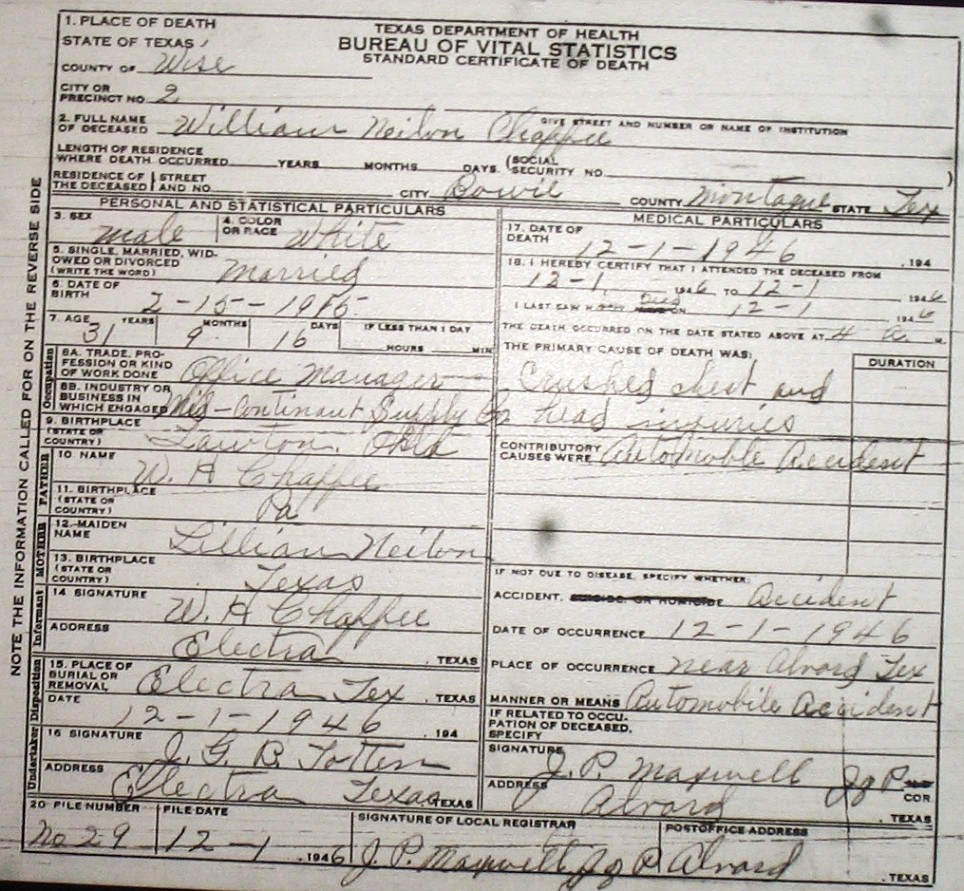 TEXAS DEPARTMENT OF HEALTH
BUREAU OF VITAL STATISTICS
STANDARD CERTIFICATE OF DEATH
NOTE THE INFORMATION CALLED FOR ON THE REVERSE SIDE
1. PLACE OF DEATH
STATE OF TEXAS
COUNTY OF Wise
CITY OR
PRECINCT NO. 2
GIVE STREET AND NUMBER OR NAME OF INSTITUTION
2. FULL NAME
OF DECEASED William Neilon Chaffee
LENGTH OF RESIDENCE
WHERE DEATH OCCURRED YEARS MONTHS DAYS (SOCIAL SECURITY NO. )
RESIDENCE OF THE DECEASED STREET AND NO. CITY Bowie COUNTY Montague STATE Tex
PERSONAL AND STATISTICAL PARTICULARS
3. SEX male 4. COLOR OR RACE White
5. SINGLE, MARRIED, WID-
OWED OR DIVORCED
(WRITE THE WORD) Married
6. DATE OF
BIRTH 2-15-1915
7. AGE 31 YEARS 9 MONTHS 16 DAYS IF LESS THAN 1 DAY
HOURS MIN
Occupation
8A. TRADE, PRO-
FESSION OR KIND
OF WORK DONE Office Manager
8B. INDUSTRY OR
BUSINESS IN
WHICH ENGAGED Mid-Continent Supply Co
9. BIRTHPLACE
(STATE OR
COUNTRY) Lawton, Okla
FATHER
10. NAME W. H Chaffee
11. BIRTHPLACE
(STATE OR
COUNTRY) Pa
MOTHER
12. MAIDEN
NAME Lillian Neilon
13. BIRTHPLACE
(STATE OR
COUNTRY) Texas
Informant
14 SIGNATURE W. H Chaffee
ADDRESS Electra , TEXAS
Disposition
15. PLACE OF
BURIAL OR
REMOVAL Electra Tex , TEXAS
DATE 12-1-1946 , 194
Undertaker
16 SIGNATURE J. G. B. Totten
ADDRESS Electra Texas TEXAS
MEDICAL PARTICULARS
17. DATE OF
DEATH 12-1-1946 , 194
18. I HEREBY CERTIFY THAT I ATTENDED THE DECEASED FROM
12-1, 1946 TO 12-1 1946
I LAST SAW H Dead ON 12-1 1946
THE DEATH OCCURRED ON THE DATE STATED ABOVE AT 4 a. M.
THE PRIMARY CAUSE OF DEATH WAS: DURATION
Crushed chest and
head injuries
CONTRIBUTORY
CAUSES WERE Automobile Accident
IF NOT DUE TO DISEASE, SPECIFY WHETHER:
ACCIDENT, SUICIDE, OR HOMICIDE Accident
DATE OF OCCURRENCE 12-1-1946
PLACE OF OCCURRENCE near Alvord Tex
MANNER OR MEANS Automobile Accident
IF RELATED TO OCCU-
PATION OF DECEASED,
SPECIFY
SIGNATURE J. P. Maxwell Jg P COR
ADDRESS Alvord , TEXAS
20 FILE NUMBER FILE DATE SIGNATURE OF LOCAL REGISTRAR POSTOFFICE ADDRESS
No 29 12-1 , 1946 J. P. Maxwell Jg P Alvord , TEXAS